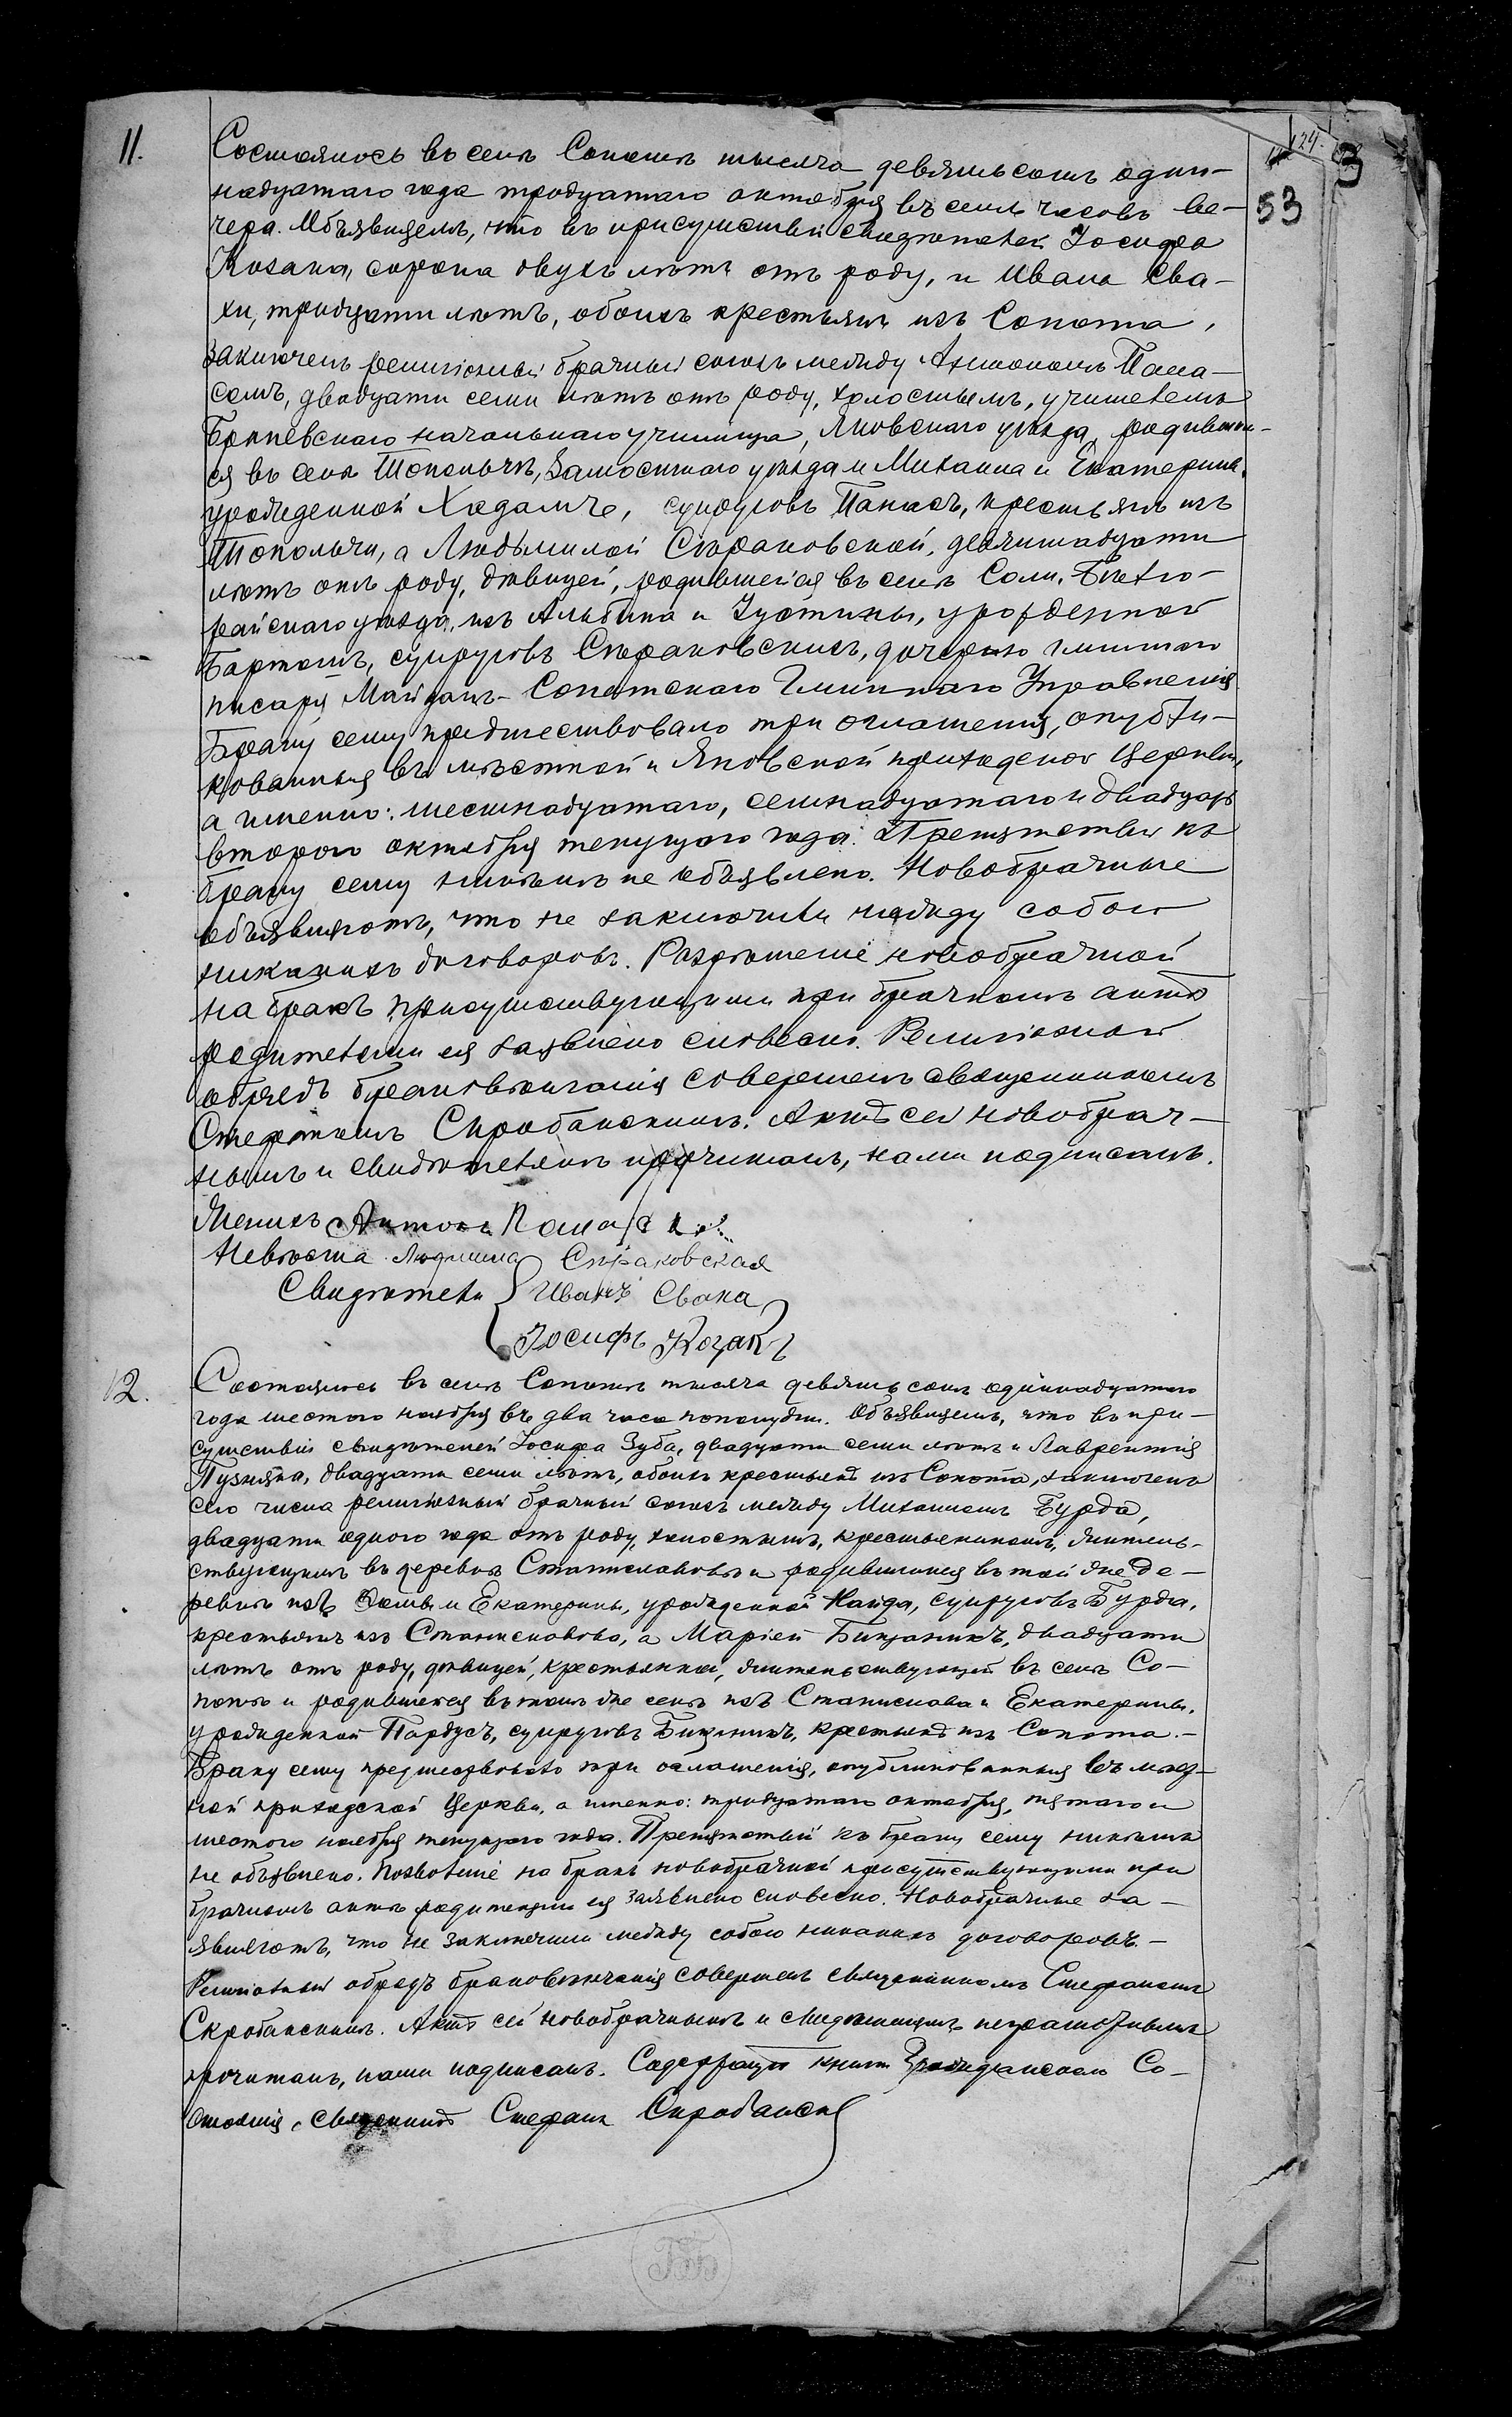 124.
3
53
11.
Состоялось въ селѣ Сопотѣ тысяча девятьсотъ один-
надцатаго года тридцатаго октября въ семь часовъ ве-
чера. Объявляемъ, что въ присутствіи свидѣтелей Іосифа
Козака, сорока двухъ лѣтъ отъ роду, и Ивана Сва-
хи, тридцати лѣтъ, обоихъ крестьянъ изъ Сопота,
заключенъ религіозный брачный союзъ между Антономъ Пана-
сомъ, двадцати семи лѣтъ отъ роду, холостымъ, учителемъ
начальнаго училища, Яновскаго уѣзда, родившим-
ся въ селѣ Топольчѣ, Замостскаго уѣзда и Михаила и Екатерины,
урожденной супруговъ Панасъ, крестьянъ изъ
Топольчи, а Людьмилой Сѣраковской, девятнадцати
лѣтъ отъ роду, дѣвицей, родившейся въ селѣ Соли, Бѣлго-
райскаго уѣзда, изъ Альбина и Іустины, урожденной
Бартошъ, супруговъ Сѣраковскихъ, дочерью гминнаго
писаря Майданъ-Сопотскаго Гминнаго Управленія
Браку сему предшествовало три оглашенія, опубли-
кованныя въ мѣстной и Яновской приходской Церкви,
а именно: шестнадцатаго, семнадцатаго и двадцать
второго октября текущаго года. Препятствія къ
браку сему никѣмъ не объявлено. Новобрачные
объявляютъ, что не заключили между собою
никакихъ договоровъ. Разрѣшеніе новобрачной
на бракъ присутствующими при брачномъ актѣ
родителями ея заявлено словесно. Религіозной
обрядъ браковѣнчанія совершенъ священникомъ
Стефаномъ Скробанскимъ. Актъ сей новобрач-
нымъ и свидѣтелямъ прочитанъ, нами подписанъ.
Женихъ Антонъ Панасъ
Невѣста Людмила Сѣраковская
Свидѣтели Иванъ Сваха
Іосифъ Козакъ
12.
Состоялось въ селѣ Сопотѣ тысяча девятьсотъ одиннадцатаго
года шестого ноября въ два часа пополудни. Объявляемъ, что въ при-
сутствіи свидѣтелей Іосифа Зуба, двадцати семи лѣтъ и Лаврентія
Пузняка, двадцати семи лѣтъ, обоихъ крестьянъ изъ Сопота, заключенъ
сего числа религіозный брачный союзъ между Михаиломъ Бурда,
двадцати одного года отъ роду, холостымъ, крестьяниномъ, жительь-
ствующимъ въ деревнѣ Станиславовѣ и родившимся въ той же де-
ревнѣ изъ Ѳомы и Екатерины, урожденной Найда, супруговъ Бурда,
крестьянъ изъ Станиславова, а Маріей двадцати
лѣтъ отъ роду, дѣвицей, крестьянкой, жительствующей въ селѣ Со-
потѣ и родившейся въ томъ же селѣ изъ Станислава и Екатерины,
урожденной Пардусъ, супруговъ крестьянъ изъ Сопота.-
Браку сему предшествовало три оглашенія, опубликованныя въ мѣст-
ной приходской Церкви, а именно: тридцатаго октября, пятаго и
шестого ноября текущаго года. Препятствій къ браку сему никѣмъ
не объявлено. Позволеніе на бракъ новобрачной присутствующими при
брачномъ актѣ родителями ея заявлено словесно. Новобрачные за-
являютъ, что не заключили между собою никакихъ договоровъ.-
Религіозный обрядъ браковѣнчанія совершенъ священникомъ Стефаномъ
Скробанскимъ. Актъ сей новобрачнымъ и свидѣтелямъ неграмотнымъ
прочитанъ, нами подписанъ. Содержащій книги Гражданскаго Со-
стоянія, священникъ Стефанъ Скробанскій